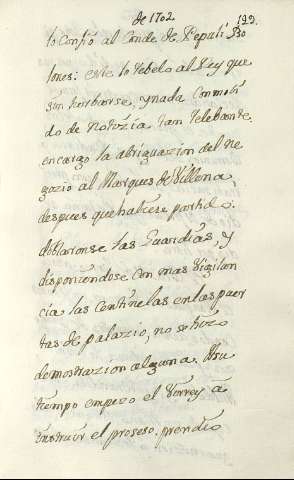 de 1702
199.
lo Confió al Conde de Pepuli Bo
lones: este lo rebelo al Rey que
sin turbarse, y nada Conmobi
do de Notizia tan relebante,
encargo la abriguazion del ne
gozio al Marques de Villena
despues que hubiese partido.
doblaronse las Guardias, y
disponiendose Con mas Vigilan
cia las Centinelas en las puer
tas de palazio, no se hizo
demostrazion alguna. A su
tiempo empezo el Virrey á
instruir el proseso. prendio